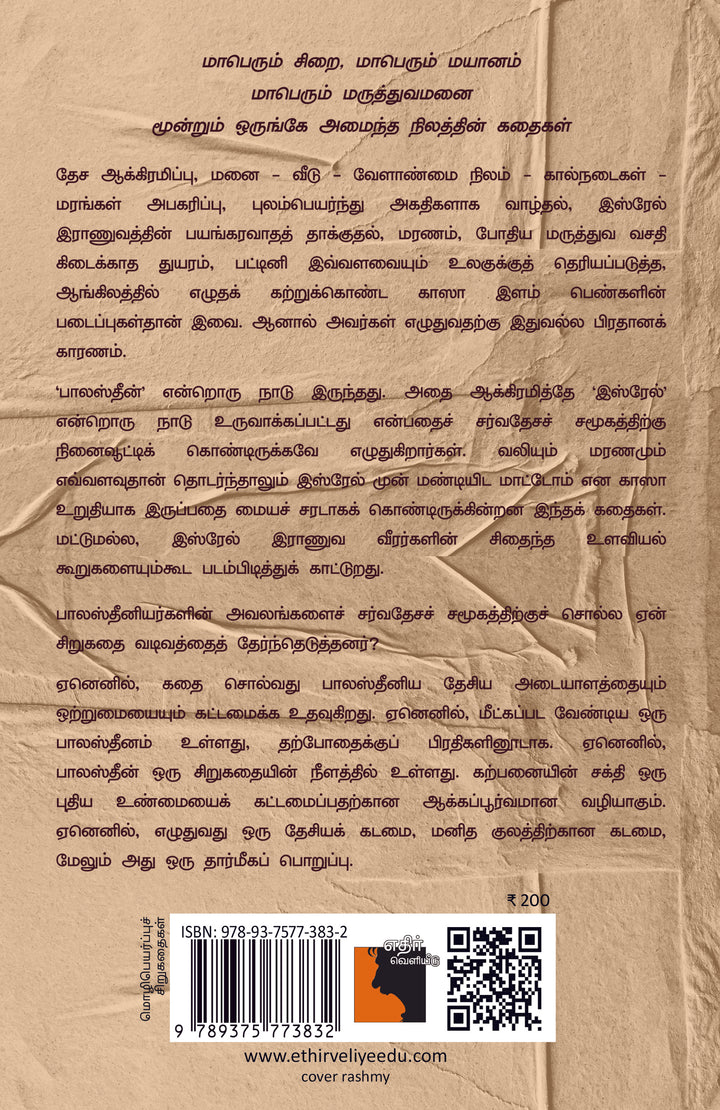 மாபெரும் சிறை, மாபெரும் மயானம்
மாபெரும் மருத்துவமனை
மூன்றும் ஒருங்கே அமைந்த நிலத்தின் கதைகள்
தேச ஆக்கிரமிப்பு, மனை – வீடு – வேளாண்மை நிலம் – கால்நடைகள் –
மரங்கள் அபகரிப்பு, புலம்பெயர்ந்து அகதிகளாக வாழ்தல், இஸ்ரேல்
இராணுவத்தின் பயங்கரவாதத் தாக்குதல், மரணம், போதிய மருத்துவ வசதி
கிடைக்காத துயரம், பட்டினி இவ்வளவையும் உலகுக்குத் தெரியப்படுத்த,
ஆங்கிலத்தில் எழுதக் கற்றுக்கொண்ட காஸா இளம் பெண்களின்
படைப்புகள்தான் இவை. ஆனால் அவர்கள் எழுதுவதற்கு இதுவல்ல பிரதானக்
காரணம்.
‘பாலஸ்தீன்’ என்றொரு நாடு இருந்தது. அதை ஆக்கிரமித்தே ‘இஸ்ரேல்’
என்றொரு நாடு உருவாக்கப்பட்டது என்பதைச் சர்வதேசச் சமூகத்திற்கு
நினைவூட்டிக் கொண்டிருக்கவே எழுதுகிறார்கள். வலியும் மரணமும்
எவ்வளவுதான் தொடர்ந்தாலும் இஸ்ரேல் முன் மண்டியிட மாட்டோம் என காஸா
உறுதியாக இருப்பதை மையச் சரடாகக் கொண்டிருக்கின்றன இந்தக் கதைகள்.
மட்டுமல்ல, இஸ்ரேல் இராணுவ வீரர்களின் சிதைந்த உளவியல்
கூறுகளையும்கூட படம்பிடித்துக் காட்டுறது.
பாலஸ்தீனியர்களின் அவலங்களைச் சர்வதேசச் சமூகத்திற்குச் சொல்ல ஏன்
சிறுகதை வடிவத்தைத் தேர்ந்தெடுத்தனர்?
ஏனெனில், கதை சொல்வது பாலஸ்தீனிய தேசிய அடையாளத்தையும்
ஒற்றுமையையும் கட்டமைக்க உதவுகிறது. ஏனெனில், மீட்கப்பட வேண்டிய ஒரு
பாலஸ்தீனம் உள்ளது, தற்போதைக்குப் பிரதிகளினூடாக. ஏனெனில்,
பாலஸ்தீன் ஒரு சிறுகதையின் நீளத்தில் உள்ளது. கற்பனையின் சக்தி ஒரு
புதிய உண்மையைக் கட்டமைப்பதற்கான ஆக்கப்பூர்வமான வழியாகும்.
ஏனெனில், எழுதுவது ஒரு தேசியக் கடமை, மனித குலத்திற்கான கடமை,
மேலும் அது ஒரு தார்மீகப் பொறுப்பு.
₹ 200
மொழிபெயர்ப்புச்
சிறுகதைகள்
ISBN: 978-93-7577-383-2
9 789375 773832
எதிர்
வெளியீடு
www.ethirveliyeedu.com
cover rashmy